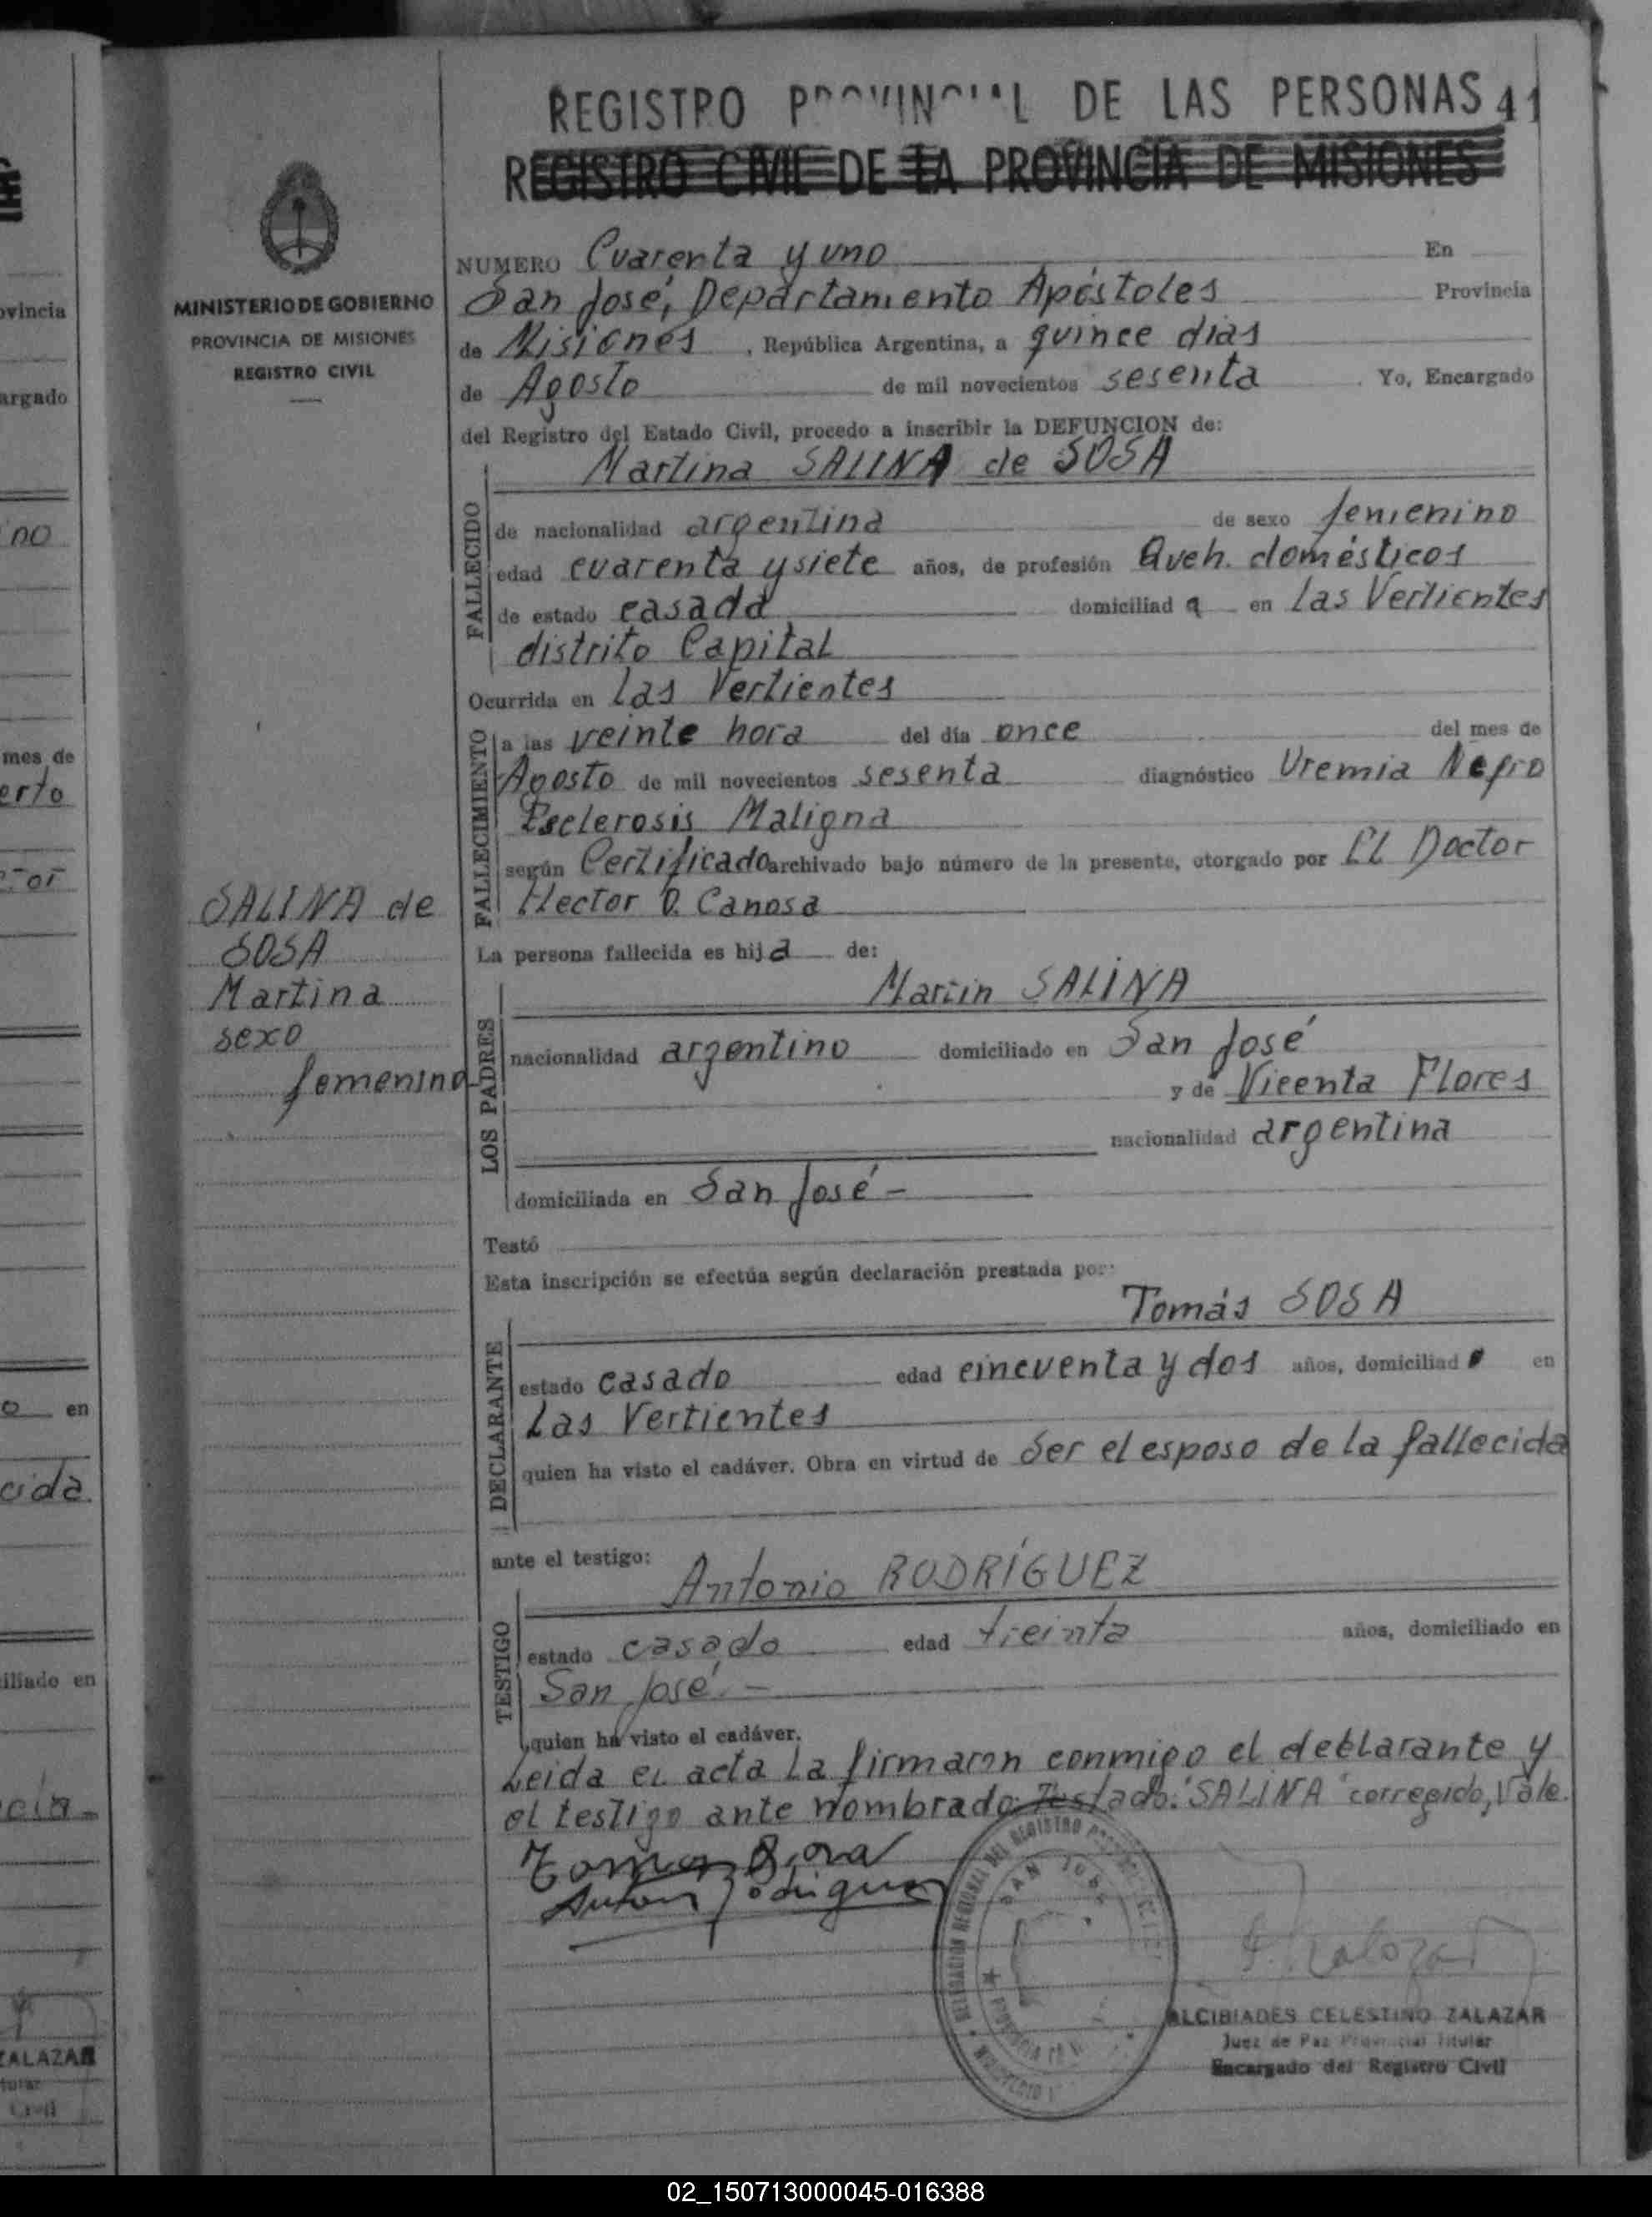 REGISTRO PROVINCIAL DE LAS PERSONAS 41
REGISTRO CIVIL DE LA PROVINCIA DE MISIONES
MINISTERIO DE GOBIERNO
PROVINCIA DE MISIONES
REGISTRO CIVIL
NUMERO Cuarenta y uno En
San José, Departamento Apóstoles Provincia
de Misiones, República Argentina, a quince dias
de Agosto de mil novecientos sesenta. Yo, Encargado
del Registro del Estado Civil, procedo a inscribir la DEFUNCION de:
Martina SALINA de SOSA
FALLECIDO
de nacionalidad argentina de sexo femenino
edad cuarenta y siete años, de profesión Queh. domésticos
de estado casada domiciliada en Las Vertientes
distrito Capital
Ocurrida en Las Vertientes
FALLECIMIENTO
a las veinte hora del día once del mes de
Agosto de mil novecientos sesenta diagnóstico Uremia Nefro
Esclerosis Maligna
según Certificado archivado bajo número de la presente, otorgado por El Doctor
Hector O. Canosa
SALINA de
SOSA
Martina
sexo
femenino
La persona fallecida es hija de:
Martin SALINA
LOS PADRES
nacionalidad argentino domiciliado en San José
y de Vicenta Flores
nacionalidad argentina
domiciliada en San José -
Testó
Esta inscripción se efectúa según declaración prestada por:
Tomás SOSA
DECLARANTE
estado casado edad cincuenta y dos años, domiciliado en
Las Vertientes
quien ha visto el cadáver. Obra en virtud de Ser el esposo de la fallecida
ante el testigo:
Antonio RODRÍGUEZ
TESTIGO
estado casado edad treinta años, domiciliado en
San José. -
quien ha visto el cadáver.
Leida el acta la firmaron conmigo el declarante y
el testigo ante nombrado. Testado: "SALINA" corregido, Vale.
Tomas Sosa
Antonio Rodriguez
DELEGACION REGIONAL DEL REGISTRO
SAN JOSE
ALCIBIADES CELESTINO ZALAZAR
Juez de Paz Provincial Titular
Encargado del Registro Civil
ovincia
argado
no
mes de
erto
o en
cida
iliado en
ZALAZAR
Civil
02_150713000045-016388